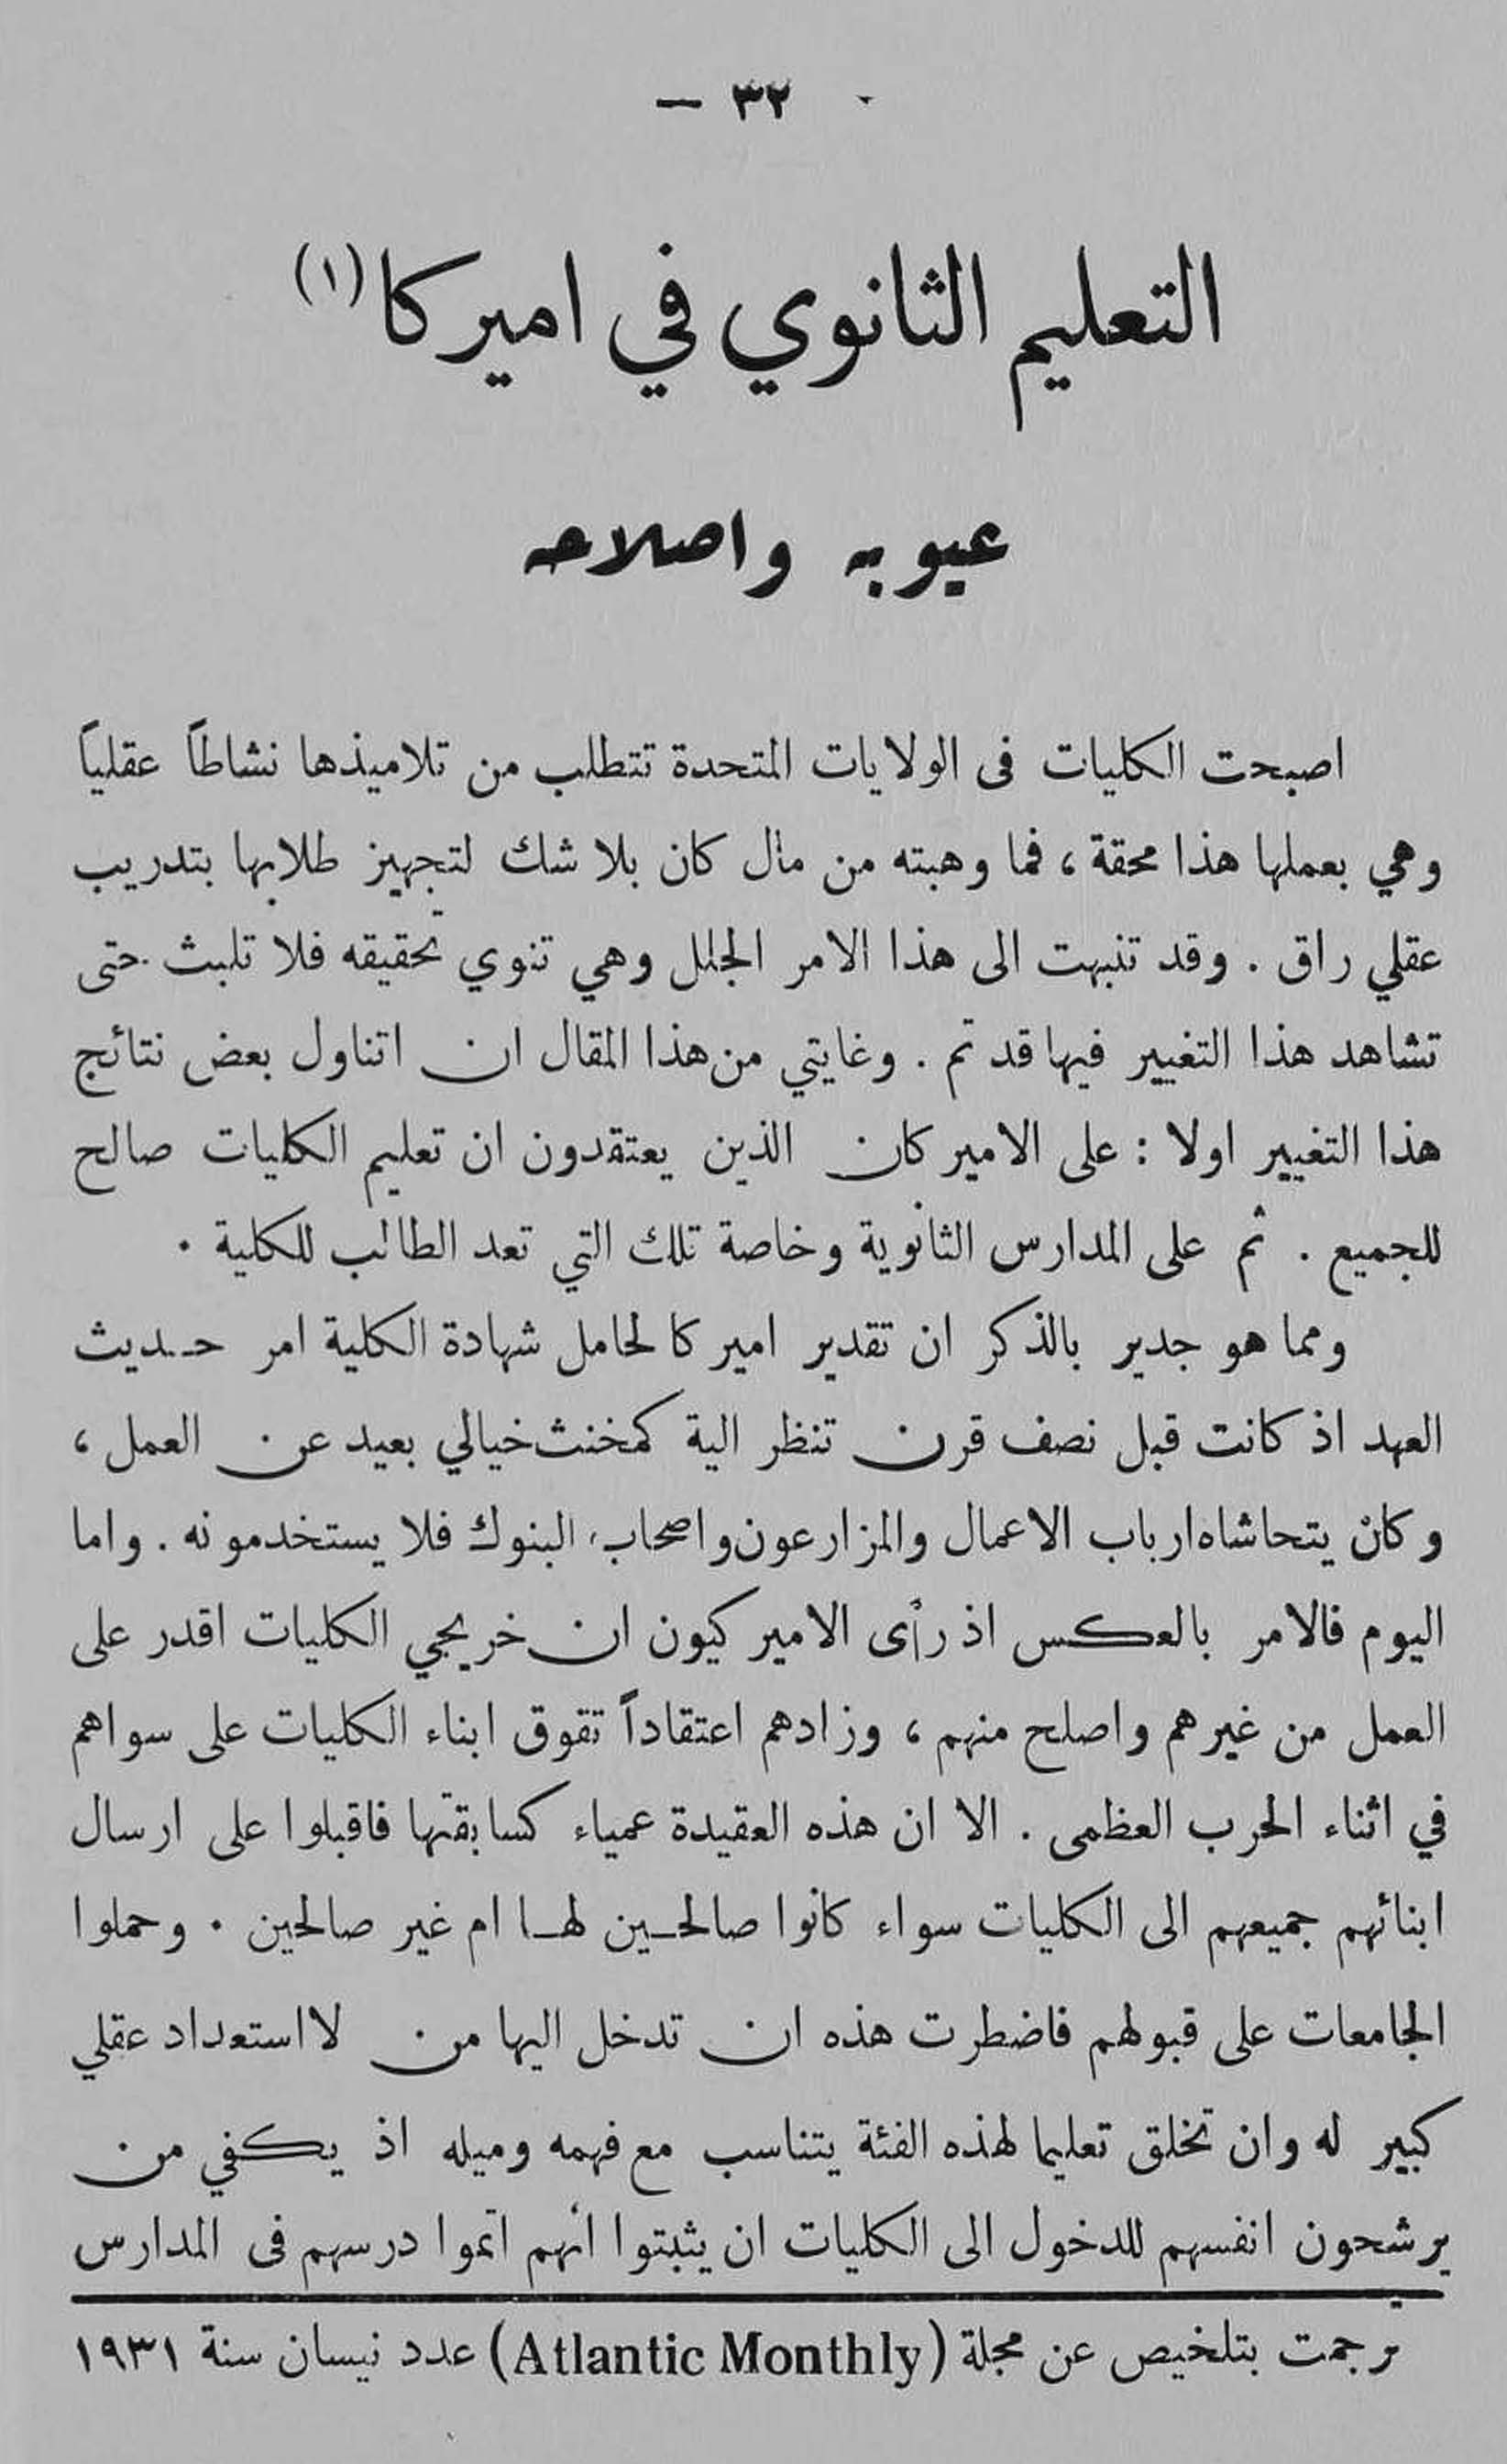 ٣٢ —
التعليم الثانوي في اميركا (١)
عيوبه واصلاحه
اصبحت الكليات فى الولايات المتحدة تتطلب من تلاميذها نشاطاً عقلياً
وهي بعملها هذا محقة ، فما وهبته من مال كان بلا شك لتجهيز طلابها بتدريب
عقلي راق . وقد تنبهت الى هذا الامر الجلل وهي تنوي تحقيقه فلا تلبث حتى
تشاهد هذا التغيير فيها قد تم . وغايتي من هذا المقال ان اتناول بعض نتائج
هذا التغيير اولا : على الاميركان الذين يعتقدون ان تعليم الكليات صالح
للجميع . ثم على المدارس الثانوية وخاصة تلك التي تعد الطالب للكلية .
ومما هو جدير بالذكر ان تقدير اميركا لحامل شهادة الكلية امر حديث
العهد اذ كانت قبل نصف قرن تنظر الية كمخنث خيالي بعيد عن العمل ،
وكان يتحاشاه ارباب الاعمال والمزارعون واصحاب البنوك فلا يستخدمونه . واما
اليوم فالامر بالعكس اذ رأى الاميركيون ان خريجي الكليات اقدر على
العمل من غيرهم واصلح منهم ، وزادهم اعتقاداً تقوق ابناء الكليات على سواهم
في اثناء الحرب العظمى . الا ان هذه العقيدة عمياء كسابقتها فاقبلوا على ارسال
ابنائهم جميعهم الى الكليات سواء كانوا صالحين لها ام غير صالحين . وحملوا
الجامعات على قبولهم فاضطرت هذه ان تدخل اليها من لا استعداد عقلي
كبير له وان تخلق تعليما لهذه الفئة يتناسب مع فهمه وميله اذ يكفي من
يرشحون انفسهم للدخول الى الكليات ان يثبتوا انهم اتموا درسهم فى المدارس
ترجمت بتلخيص عن مجلة (Atlantic Monthly) عدد نيسان سنة ١٩٣١